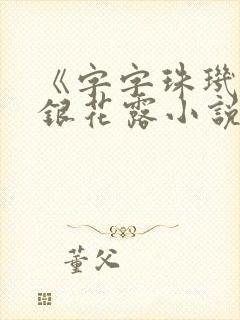 《字字珠璣
銀花露小說
董父